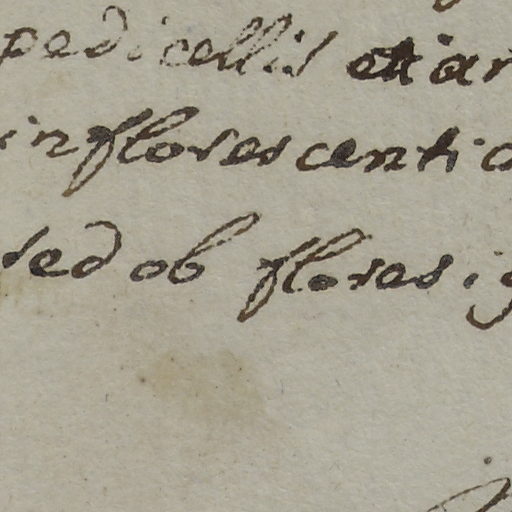 pedicellis etiam
inflorescentia
sed ob flores